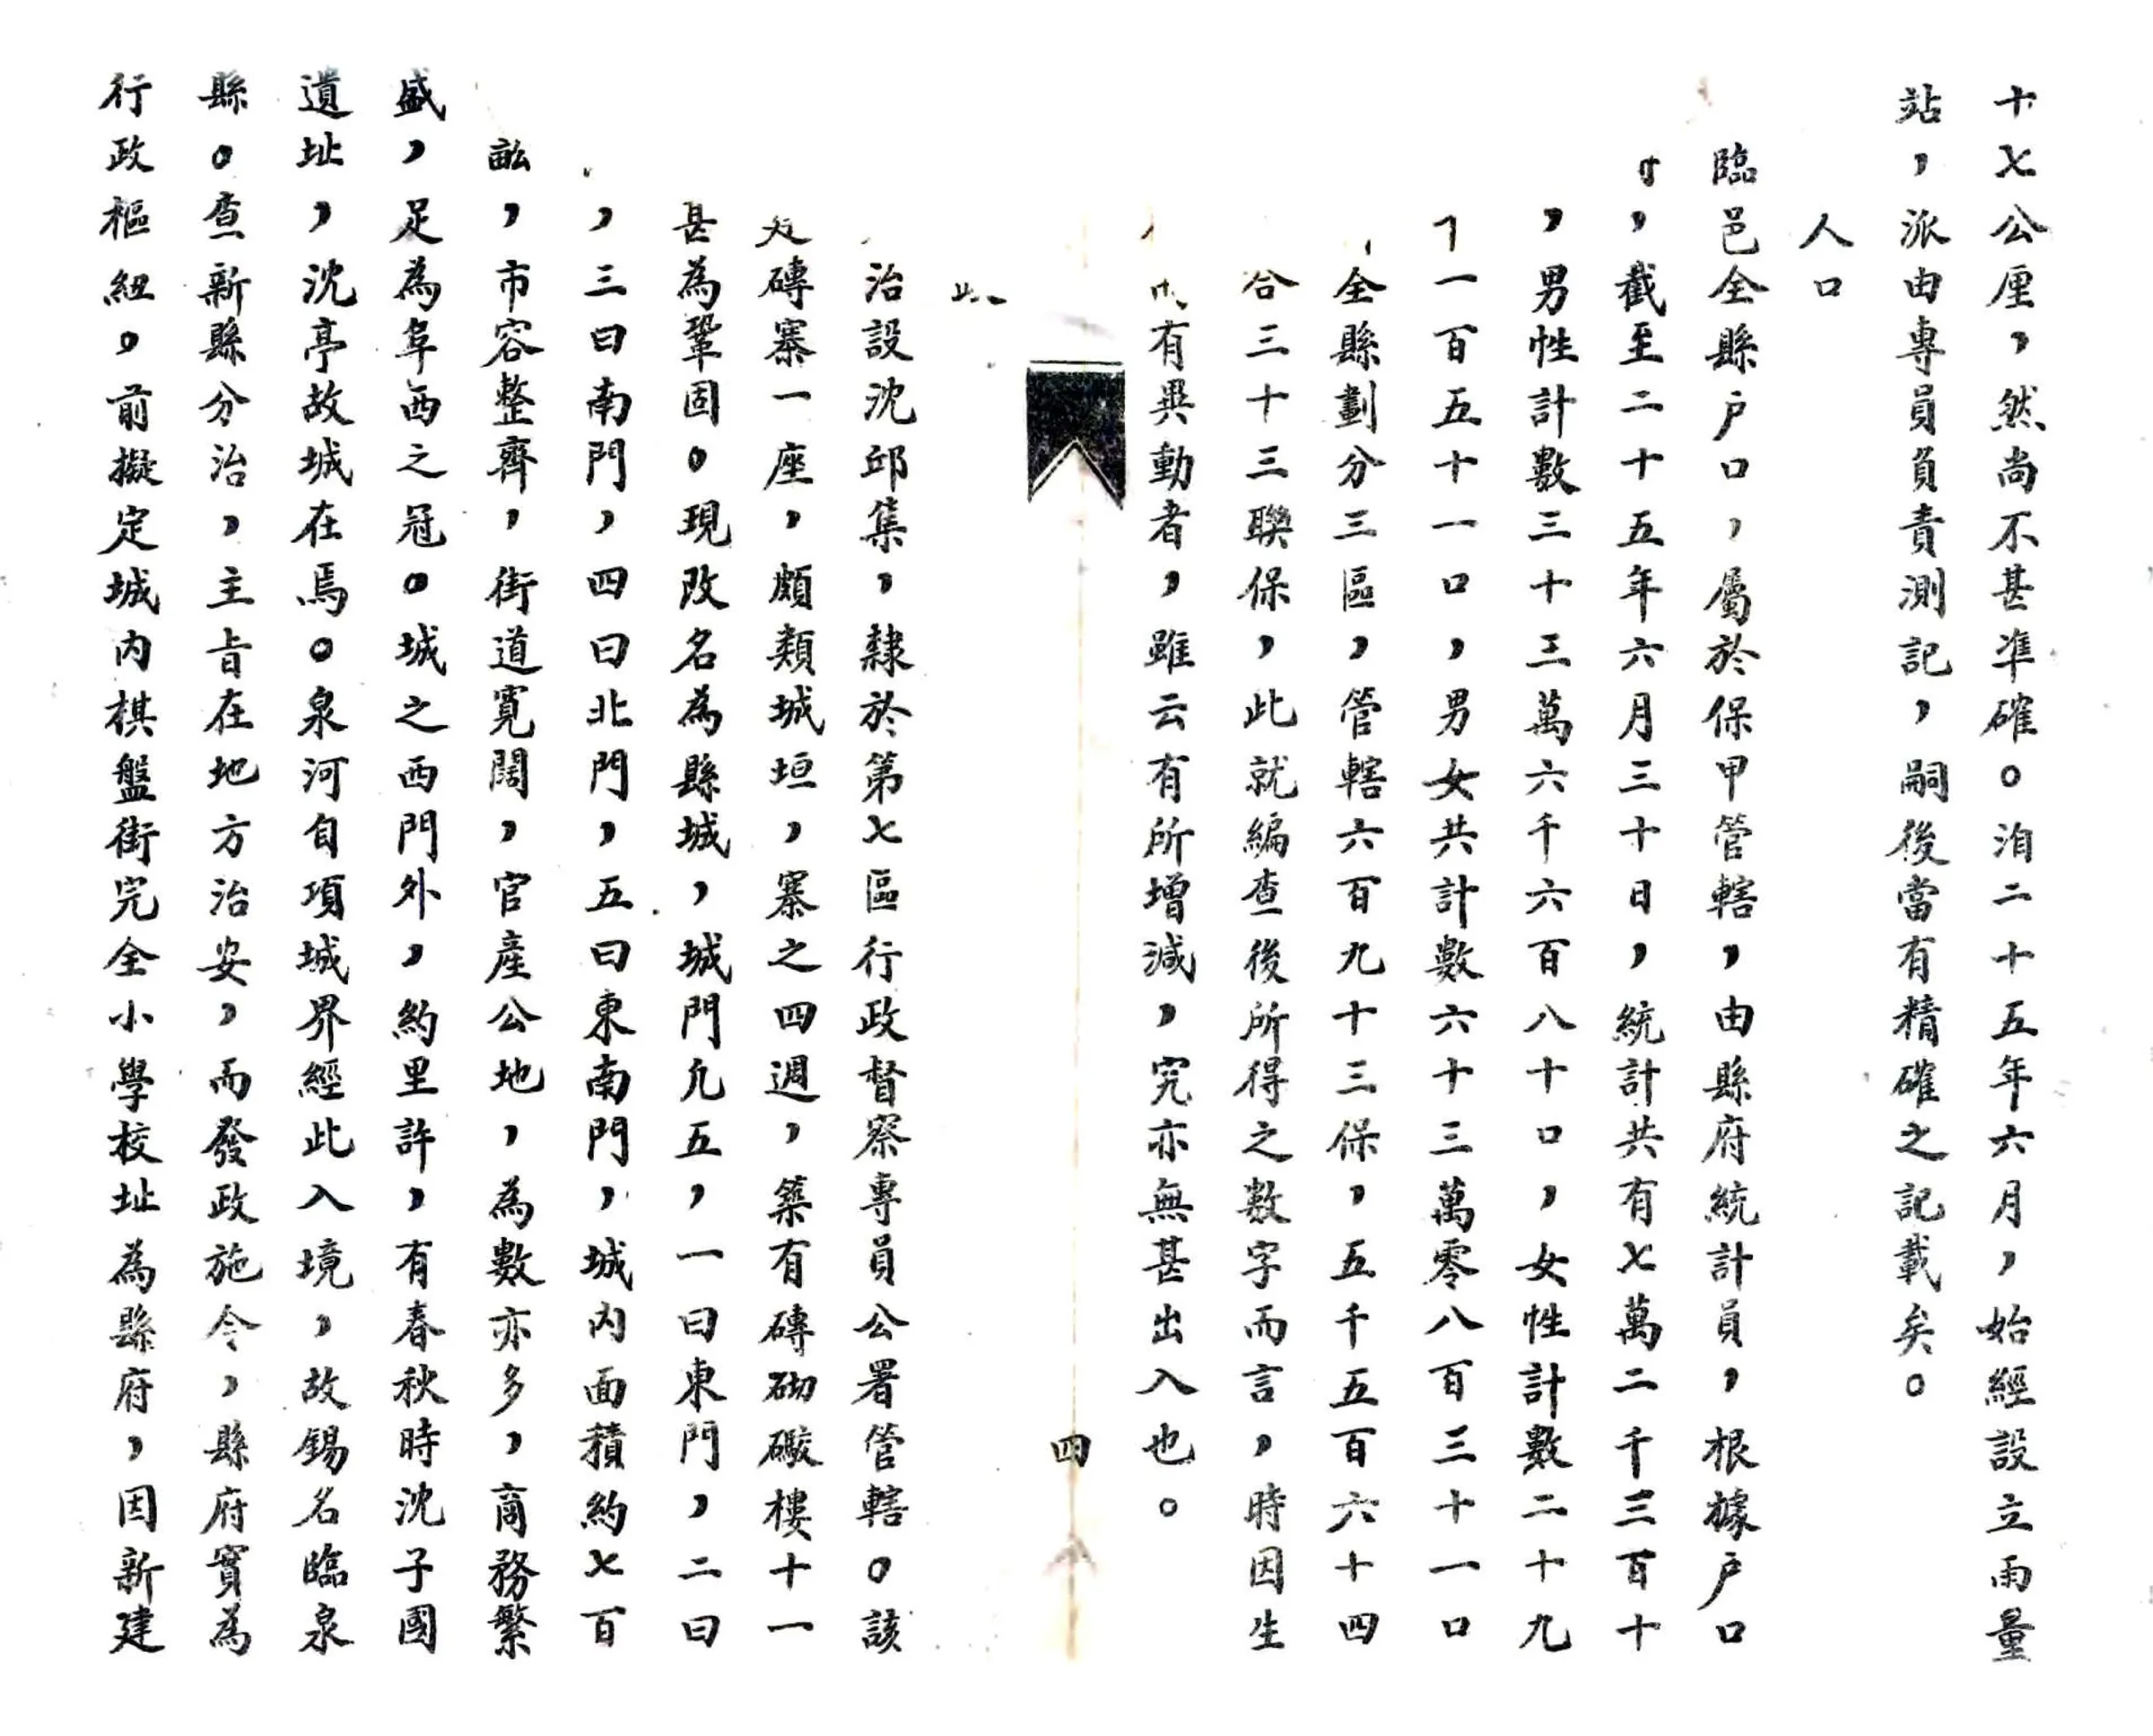 十七公厘，然尚不甚準確。洎二十五年六月，始經設立雨量
站，派由專員負責測記，嗣後當有精確之記載矣。
人口
臨邑全縣户口，屬於保甲管轄，由縣府統計員，根據户口
，截至二十五年六月三十日，統計共有七萬二千三百十
，男性計數三十三萬六千六百八十口，女性計數二十九
一百五十一口，男女共計數六十三萬零八百三十一口
全縣劃分三區，管轄六百九十三保，五千五百六十四
三十三聯保，此就編查後所得之數字而言，時因生
有異動者，雖云有所增減，究亦無甚出入也。
四
治設沈邱集，隸於第七區行政督察專員公署管轄。該
磚寨一座，頗類城垣，寨之四週，築有磚砌礮樓十一
甚為鞏固。現改名為縣城，城門凡五，一曰東門，二曰
，三曰南門，四曰北門，五曰東南門，城内面積約七百
畝，市容整齊，街道寬闊，官産公地，為數亦多，商務繁
盛，足為阜西之冠。城之西門外，約里許，有春秋時沈子國
遺址，沈亭故城在焉。泉河自項城界經此入境，故錫名臨泉
縣。查新縣分治，主旨在地方治安，而發政施令，縣府實為
行政樞紐。前擬定城内棋盤街完全小學校址為縣府，因新建